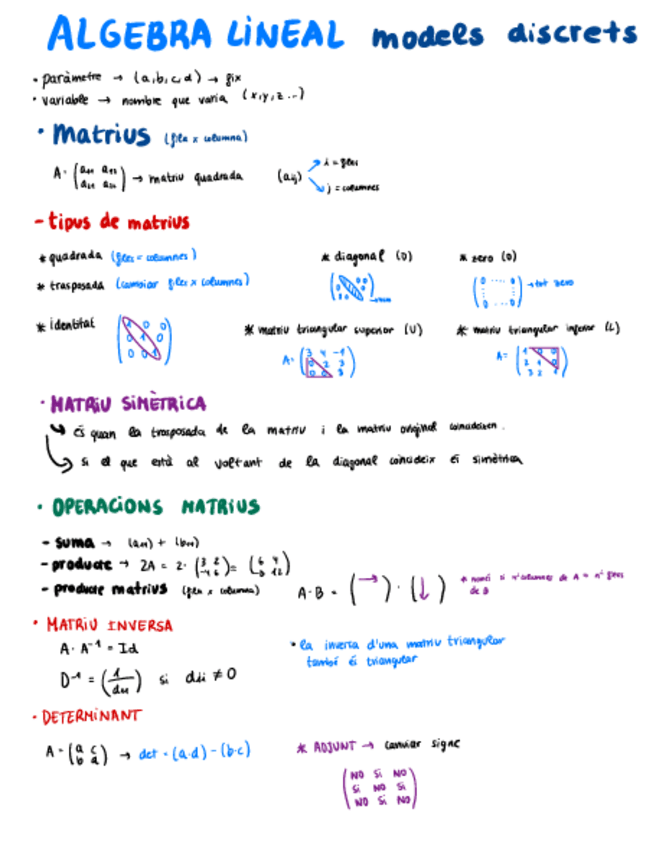 ALGEBRA LINEAL models discrets
· paràmetre → (a,b,c,d) → fix
· variable → nombre que varia (x,y,z...)
· Matrius (fila x columna)
A = (a₁₁ a₁₂ / a₂₁ a₂₂) → matriu quadrada (aij) i = files
j = columnes
- tipus de matrius
* quadrada (files = columnes) * diagonal (D) * zero (0)
* trasposada (canviar files x columnes) → tot zero
* identitat (1 0 0 / 0 1 0 / 0 0 1) * matriu triangular superior (U) * matriu triangular inferior (L)
A = (3 4 -1 / 0 2 3 / 0 0 3) A = (1 0 0 / 2 1 0 / 3 2 1)
· MATRIU SIMÈTRICA
és quan la trasposada de la matriu i la matriu original coincideixen.
si el que està al voltant de la diagonal coincideix és simètrica
· OPERACIONS MATRIUS
- suma →
- producte → 2A = 2·
- producte matrius (fila x columna) A·B = (→) · (↓) * només si nº columnes de A = nº files de B
· MATRIU INVERSA
A · A⁻¹ = Id
· la inversa d'una matriu triangular
també és triangular
D⁻¹ = (1/d₁₁) si dii ≠ 0
· DETERMINANT
A = (a c / b d) → det = (a·d) - (b·c) * ADJUNT → canviar signe
NO SI NO
SI NO SI
NO SI NO